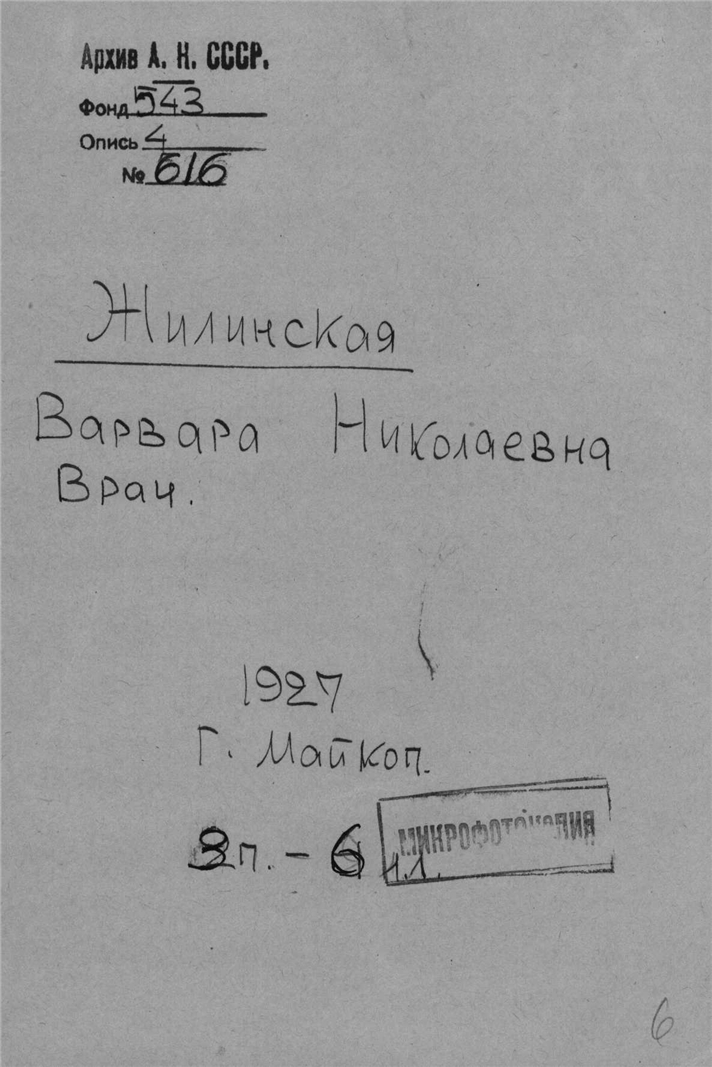 Архив А. Н. СССР.
Фонд 543
Опись 4
№ 616
Жилинская
Варвара Николаевна
Врач.
1927
г. Майкоп.
3 п. – 6 л.
МИКРОФОТОКОПИЯ
6